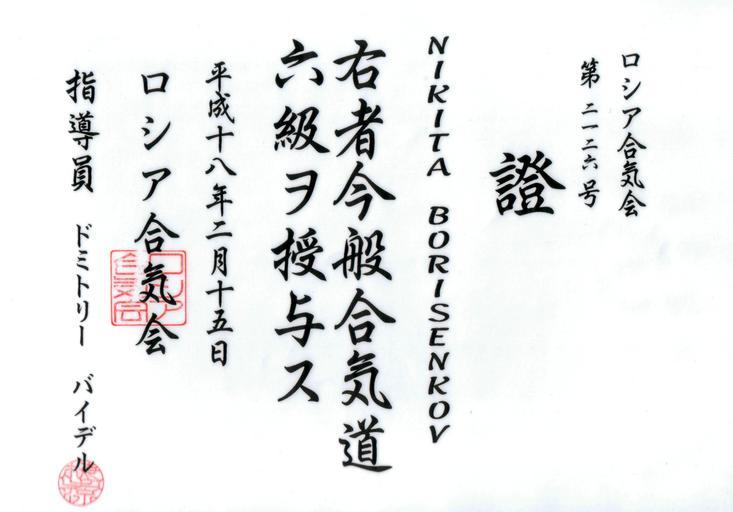 ロシア合気会
第二一二六号
證
NIKITA BORISENKOV
右者今般合気道
六級ヲ授与ス
平成十八年二月十五日
ロシア合気会
ロシア合気会
指導員 ドミトリー バイデル